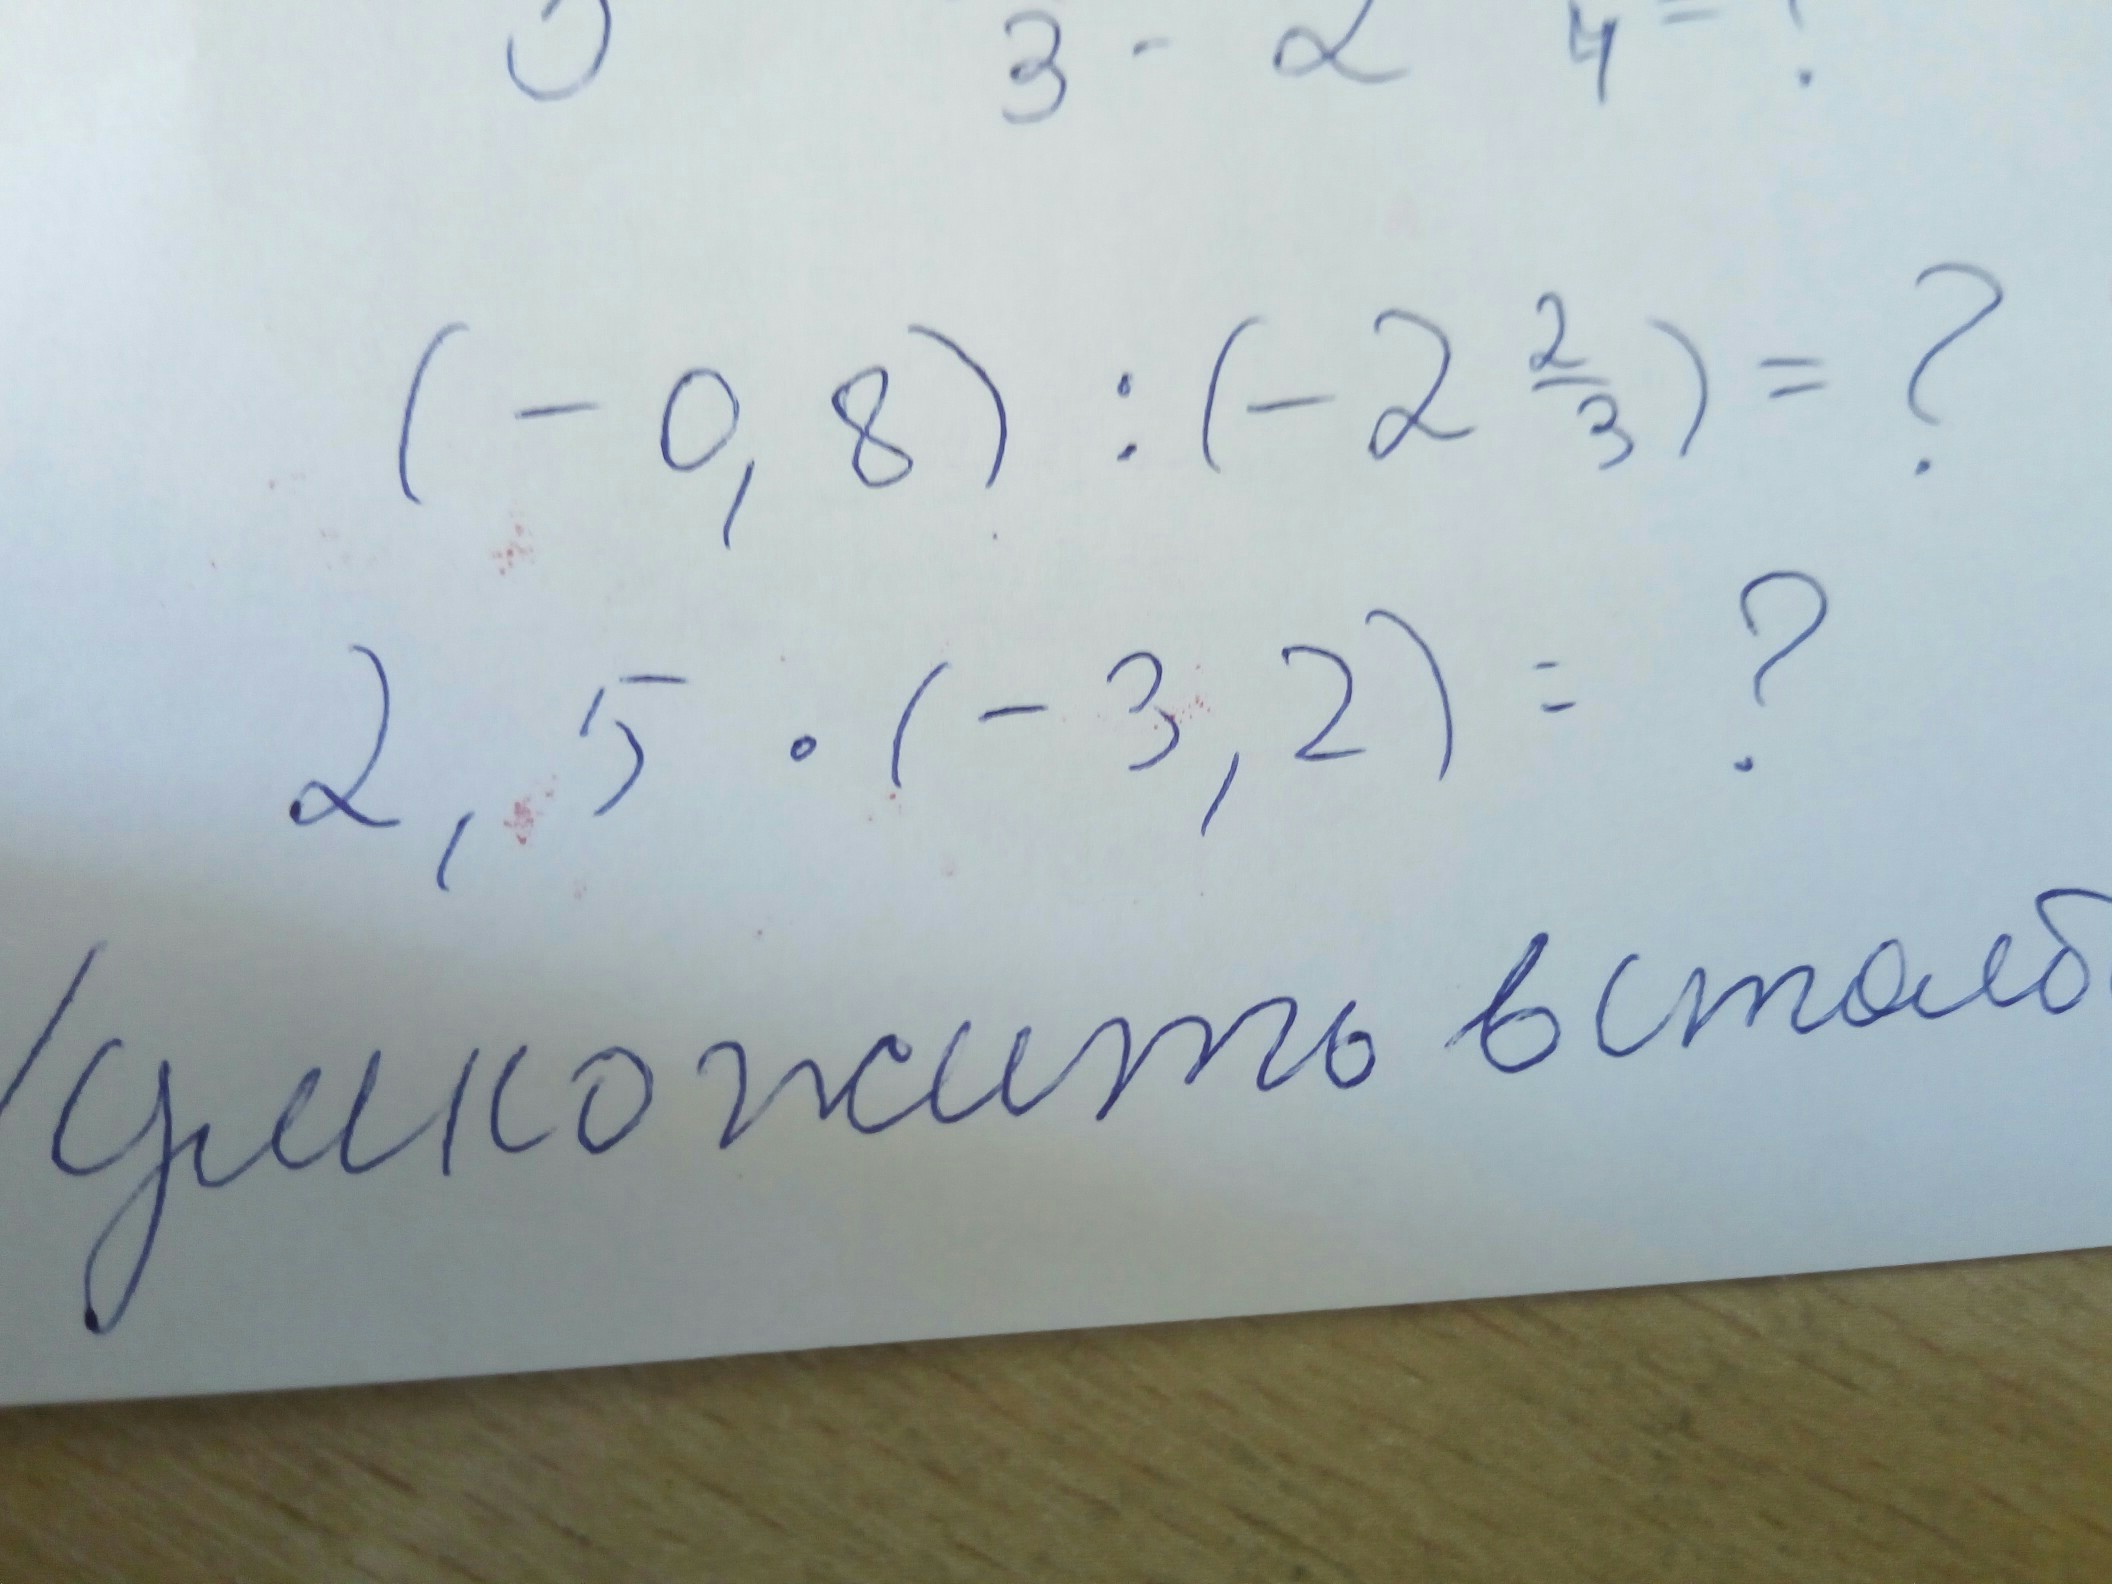 3 - 2 4 = ?
(-0,8) : (-2 2/3) = ?
2,5 · (-3,2) = ?
Умножить в столб